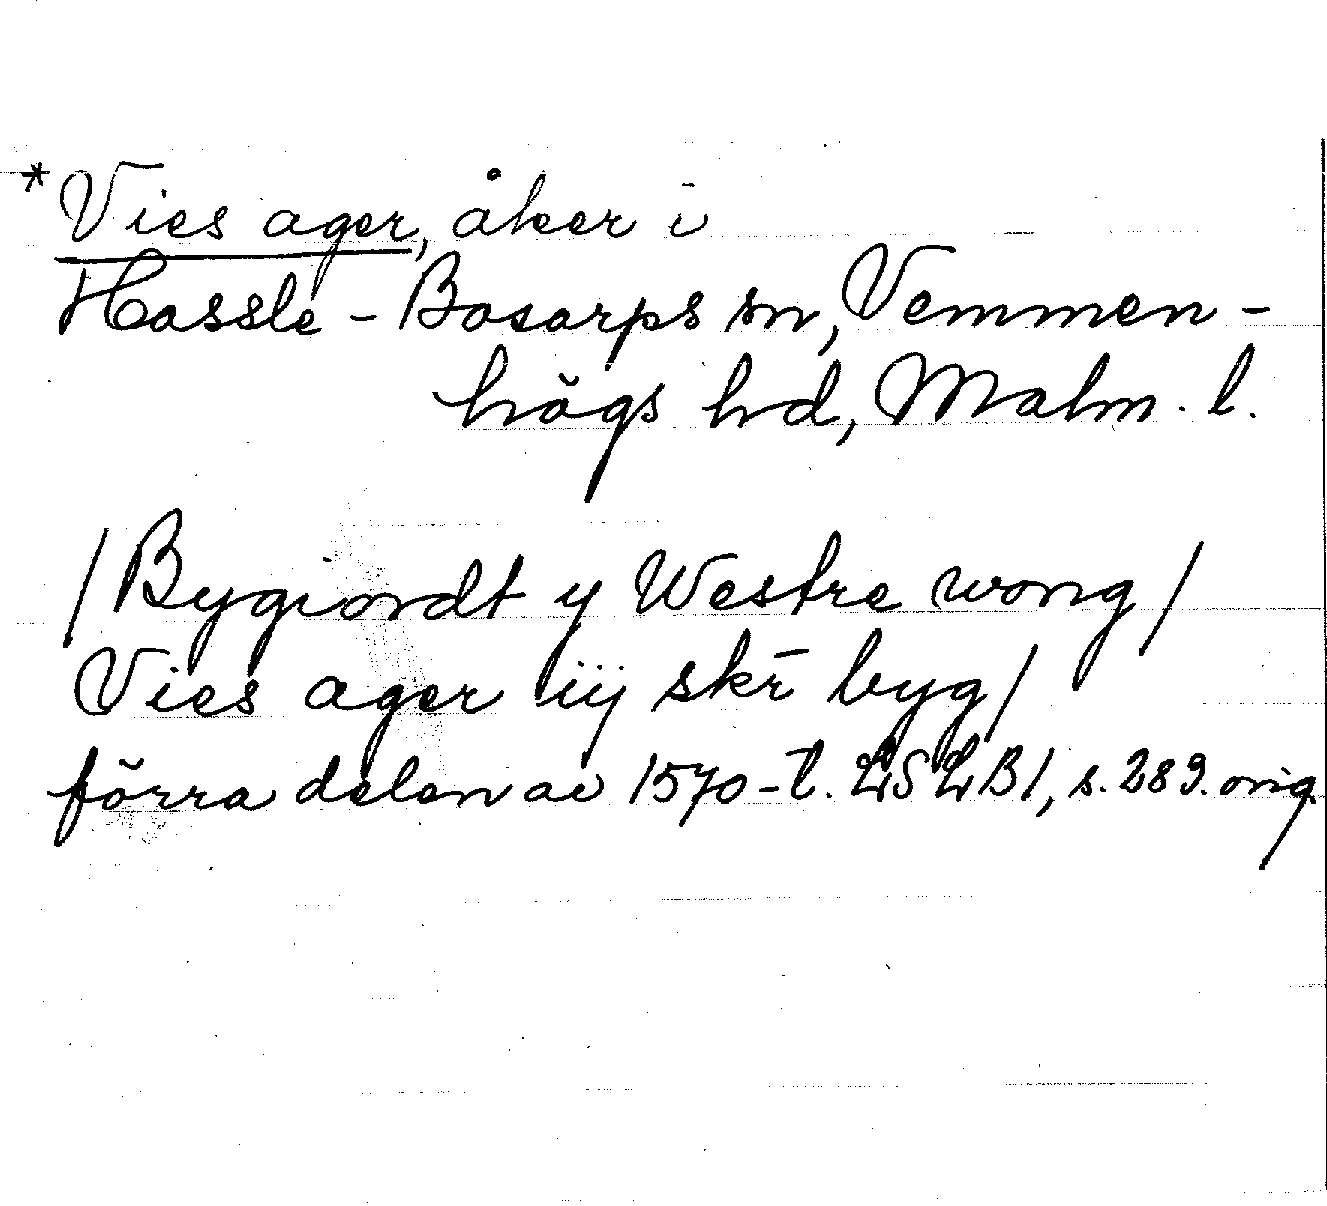 *Vies ager, åker i
Hassle-Bosarps sn, Vemmen-
högs hd, Malm. l.
/Bygiordt y Westre wong/
Vies ager iij skr̄ byg/
förra delen av 1570-t. LSLB1, s. 289. orig.